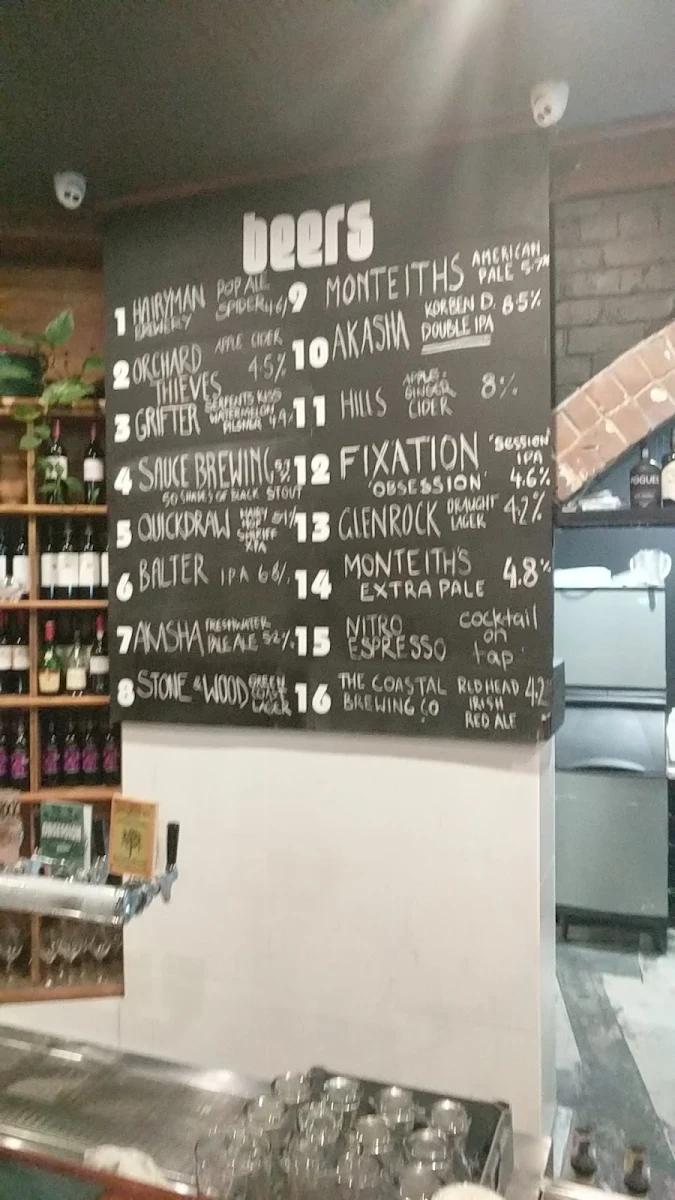 beers
1 HAIRYMAN BREWERY POP ALE SPIDER 4.6%
2 ORCHARD THIEVES APPLE CIDER 4.5%
3 GRIFTER SERPENTS KISS WATERMELON PILSNER
4 SAUCE BREWING
50 SHADES OF BLACK STOUT
5 QUICKDRAW XPA
6 BALTER IPA
7 AKASHA FRESHWATER PALE ALE 5.2%
8 STONE & WOOD GREEN COAST LAGER
9 MONTEITHS AMERICAN PALE 5.7%
10 AKASHA KORBEN D. DOUBLE IPA 8.5%
11 HILLS APPLE + GINGER CIDER 8%
12 FIXATION 'SESSION' IPA
'OBSESSION' 4.6%
13 GLENROCK DRAUGHT LAGER 4.2%
14 MONTEITH'S EXTRA PALE 4.8%
15 NITRO ESPRESSO cocktail on tap
16 THE COASTAL BREWING CO RED HEAD IRISH RED ALE 4.2
OBSESSION